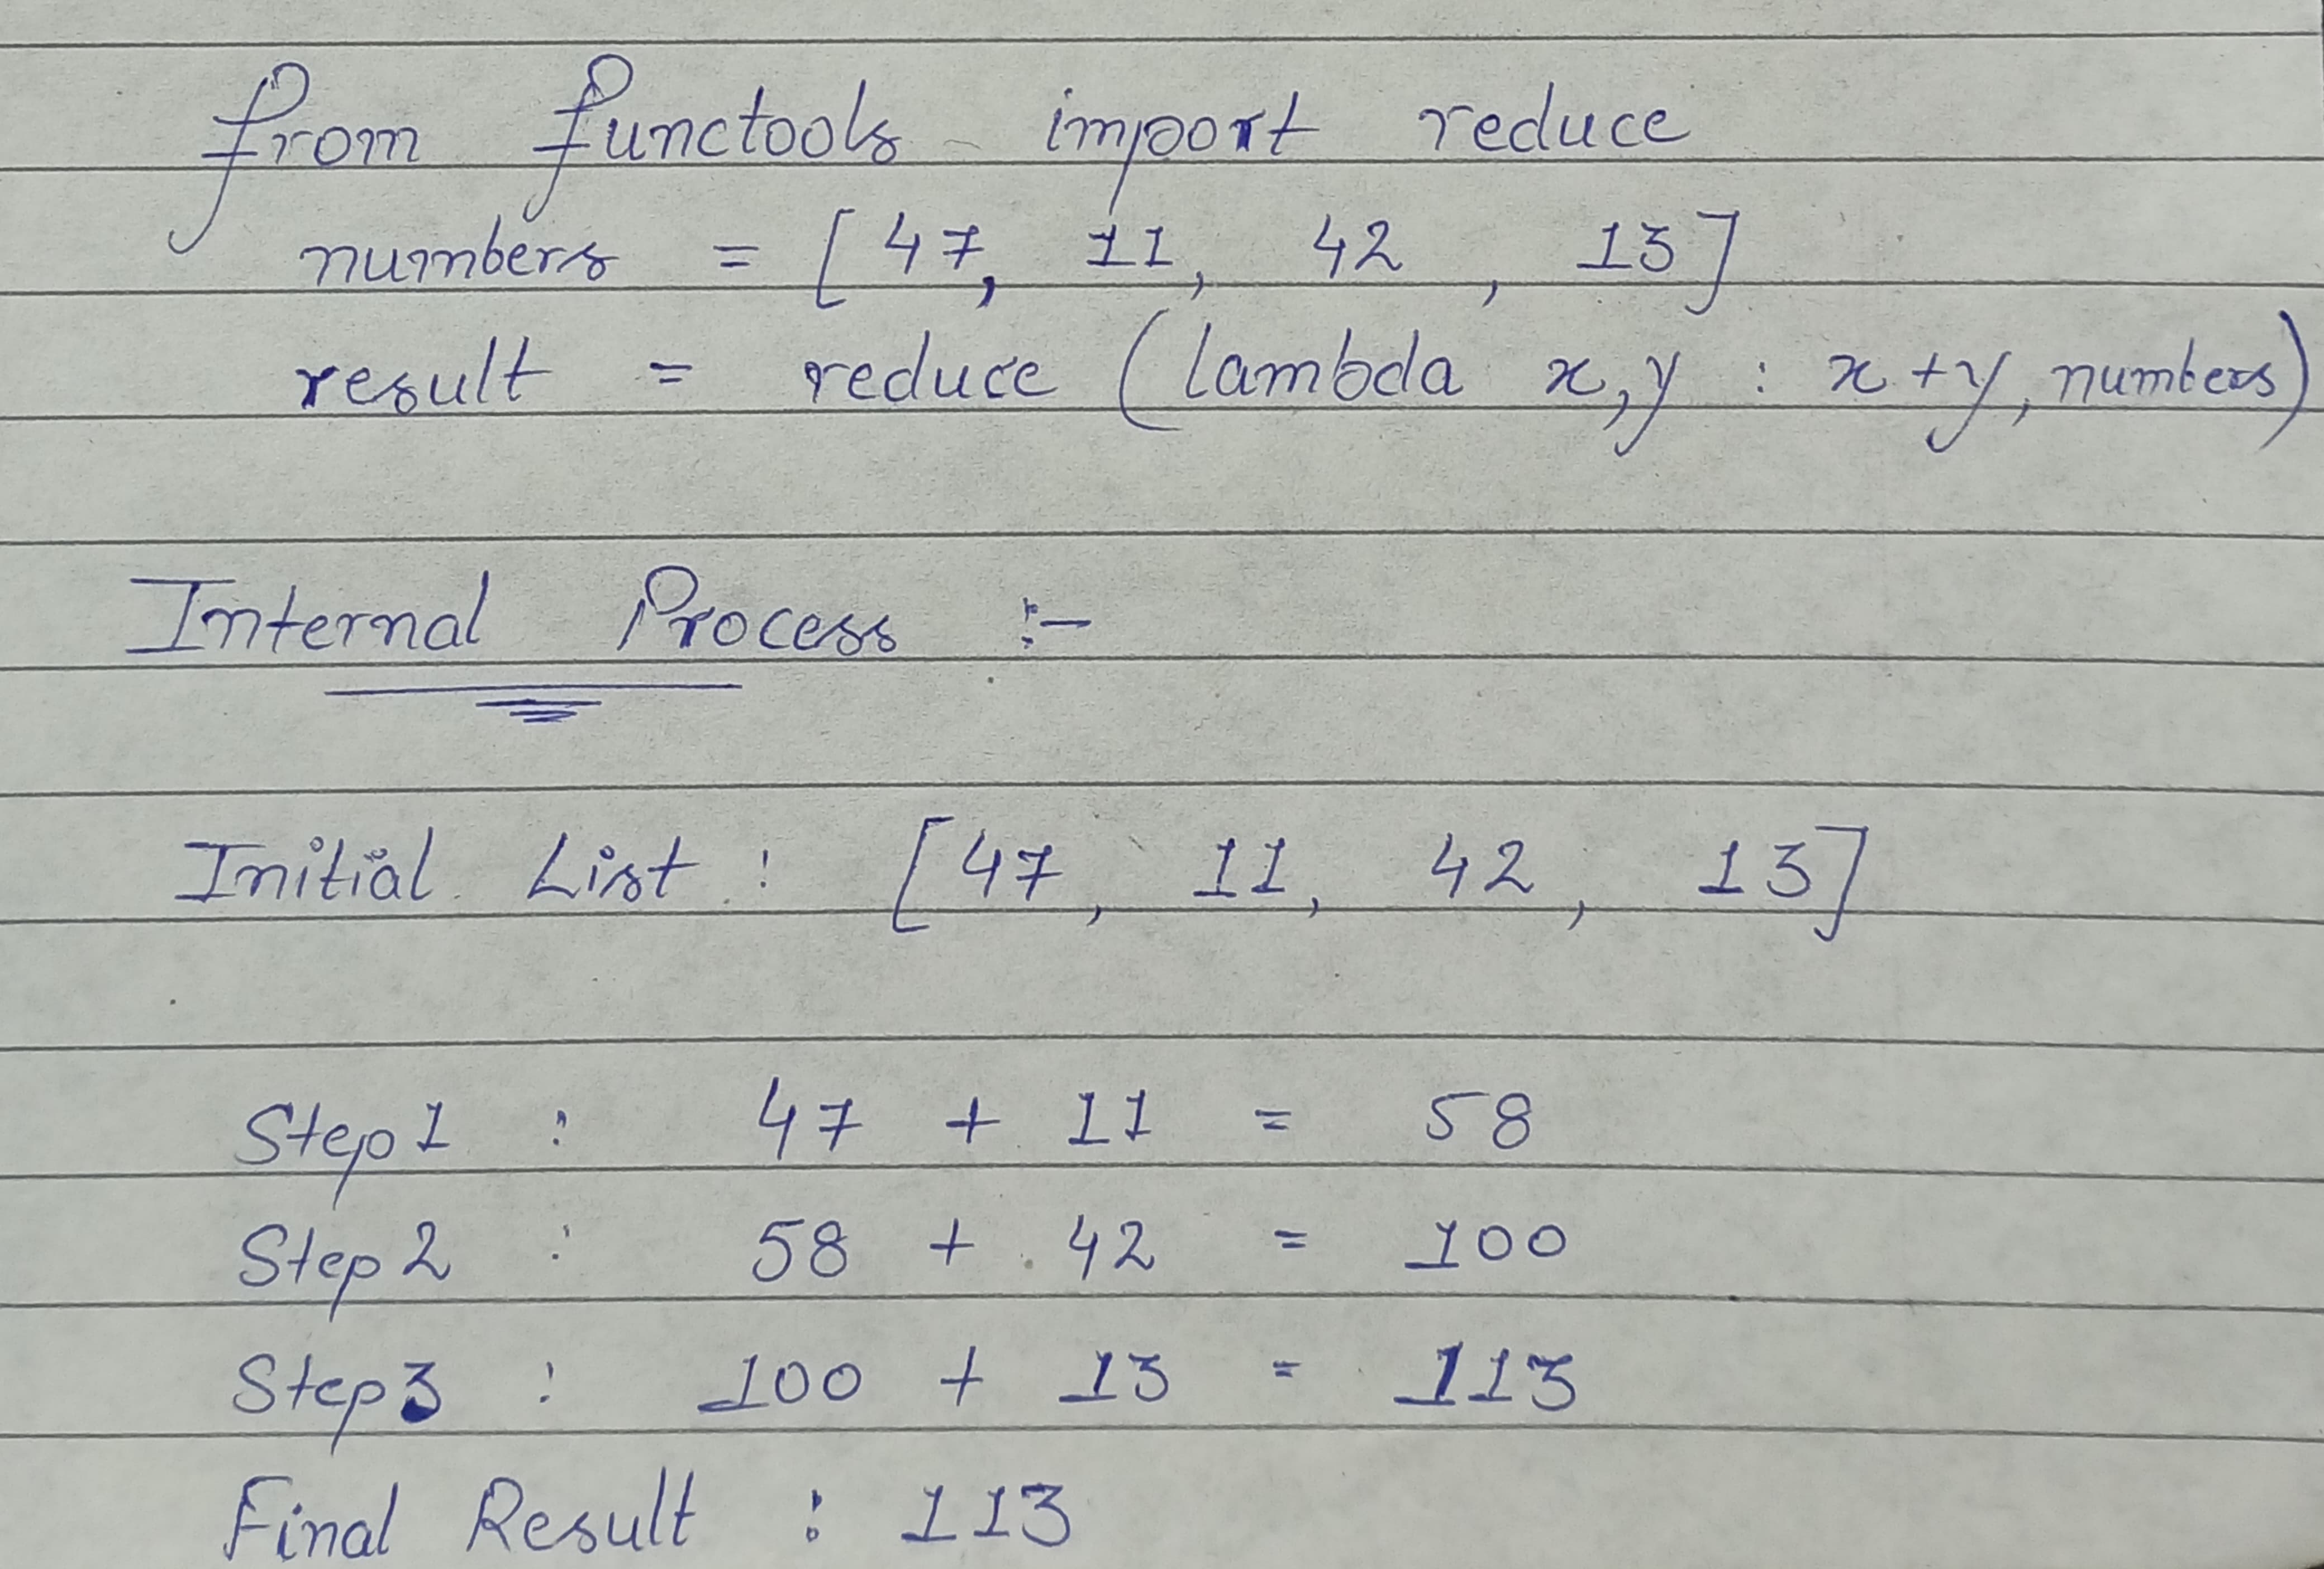 from functools import reduce
numbers = [47, 11, 42, 13]
result = reduce (lambda x,y : x+y, numbers)
Internal Process :-
Initial List : [47, 11, 42, 13]
Step 1 : 47 + 11 = 58
Step 2 : 58 + 42 = 100
Step 3 : 100 + 13 = 113
Final Result : 113